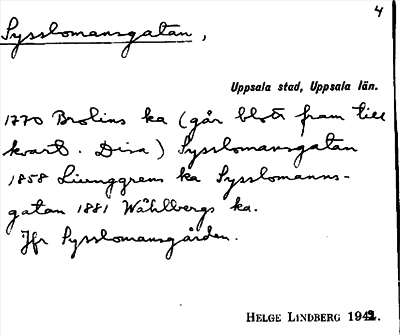 4
Sysslomansgatan,
Uppsala stad, Uppsala län.
1770 Brolins ka (går blott fram till
kvart. Disa) Sysslomansgatan
1858 Ljunggrens ka Sysslomanns-
gatan 1881 Wåhlbergs ka.
Jfr Sysslomansgården.
HELGE LINDBERG 1942.